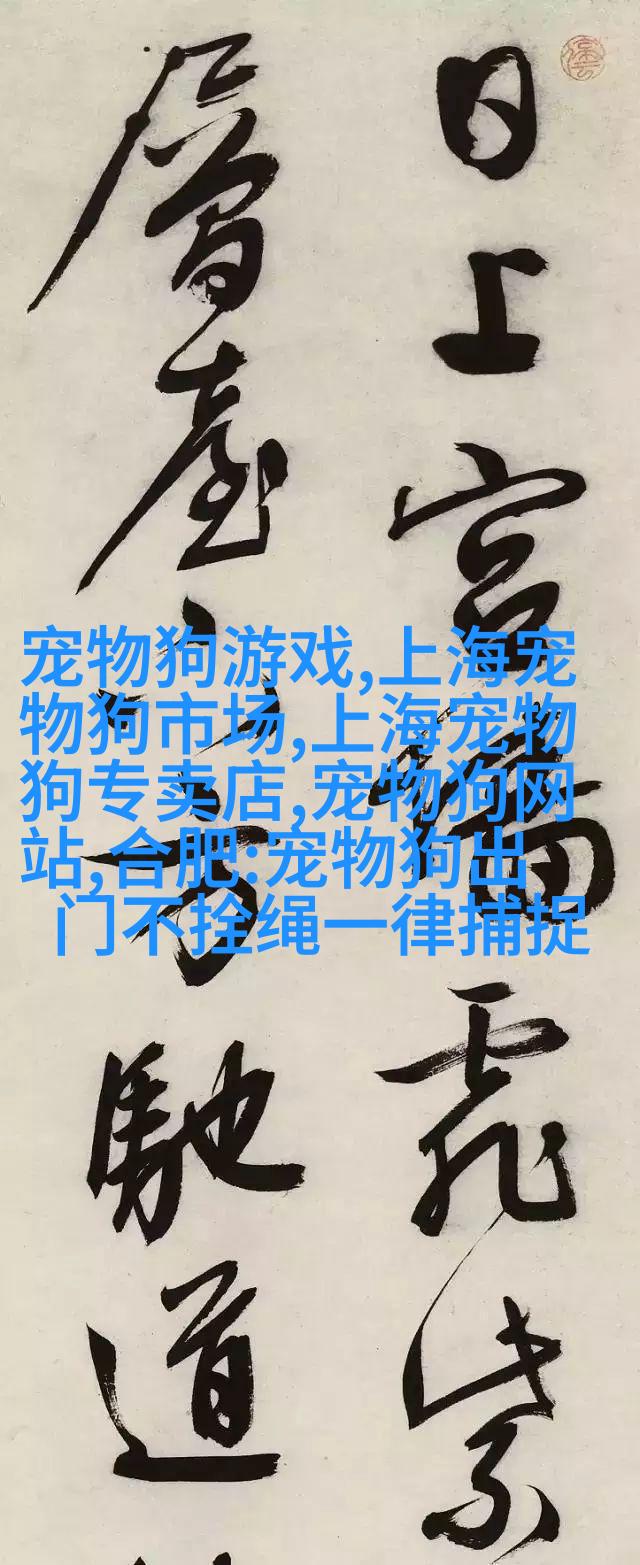 日上宮墻飛紫
層臺下方馳道
宠物狗游戏,上海宠
物狗市场,上海宠物
狗专卖店,宠物狗网
站,合肥:宠物狗出
门不拴绳一律捕捉